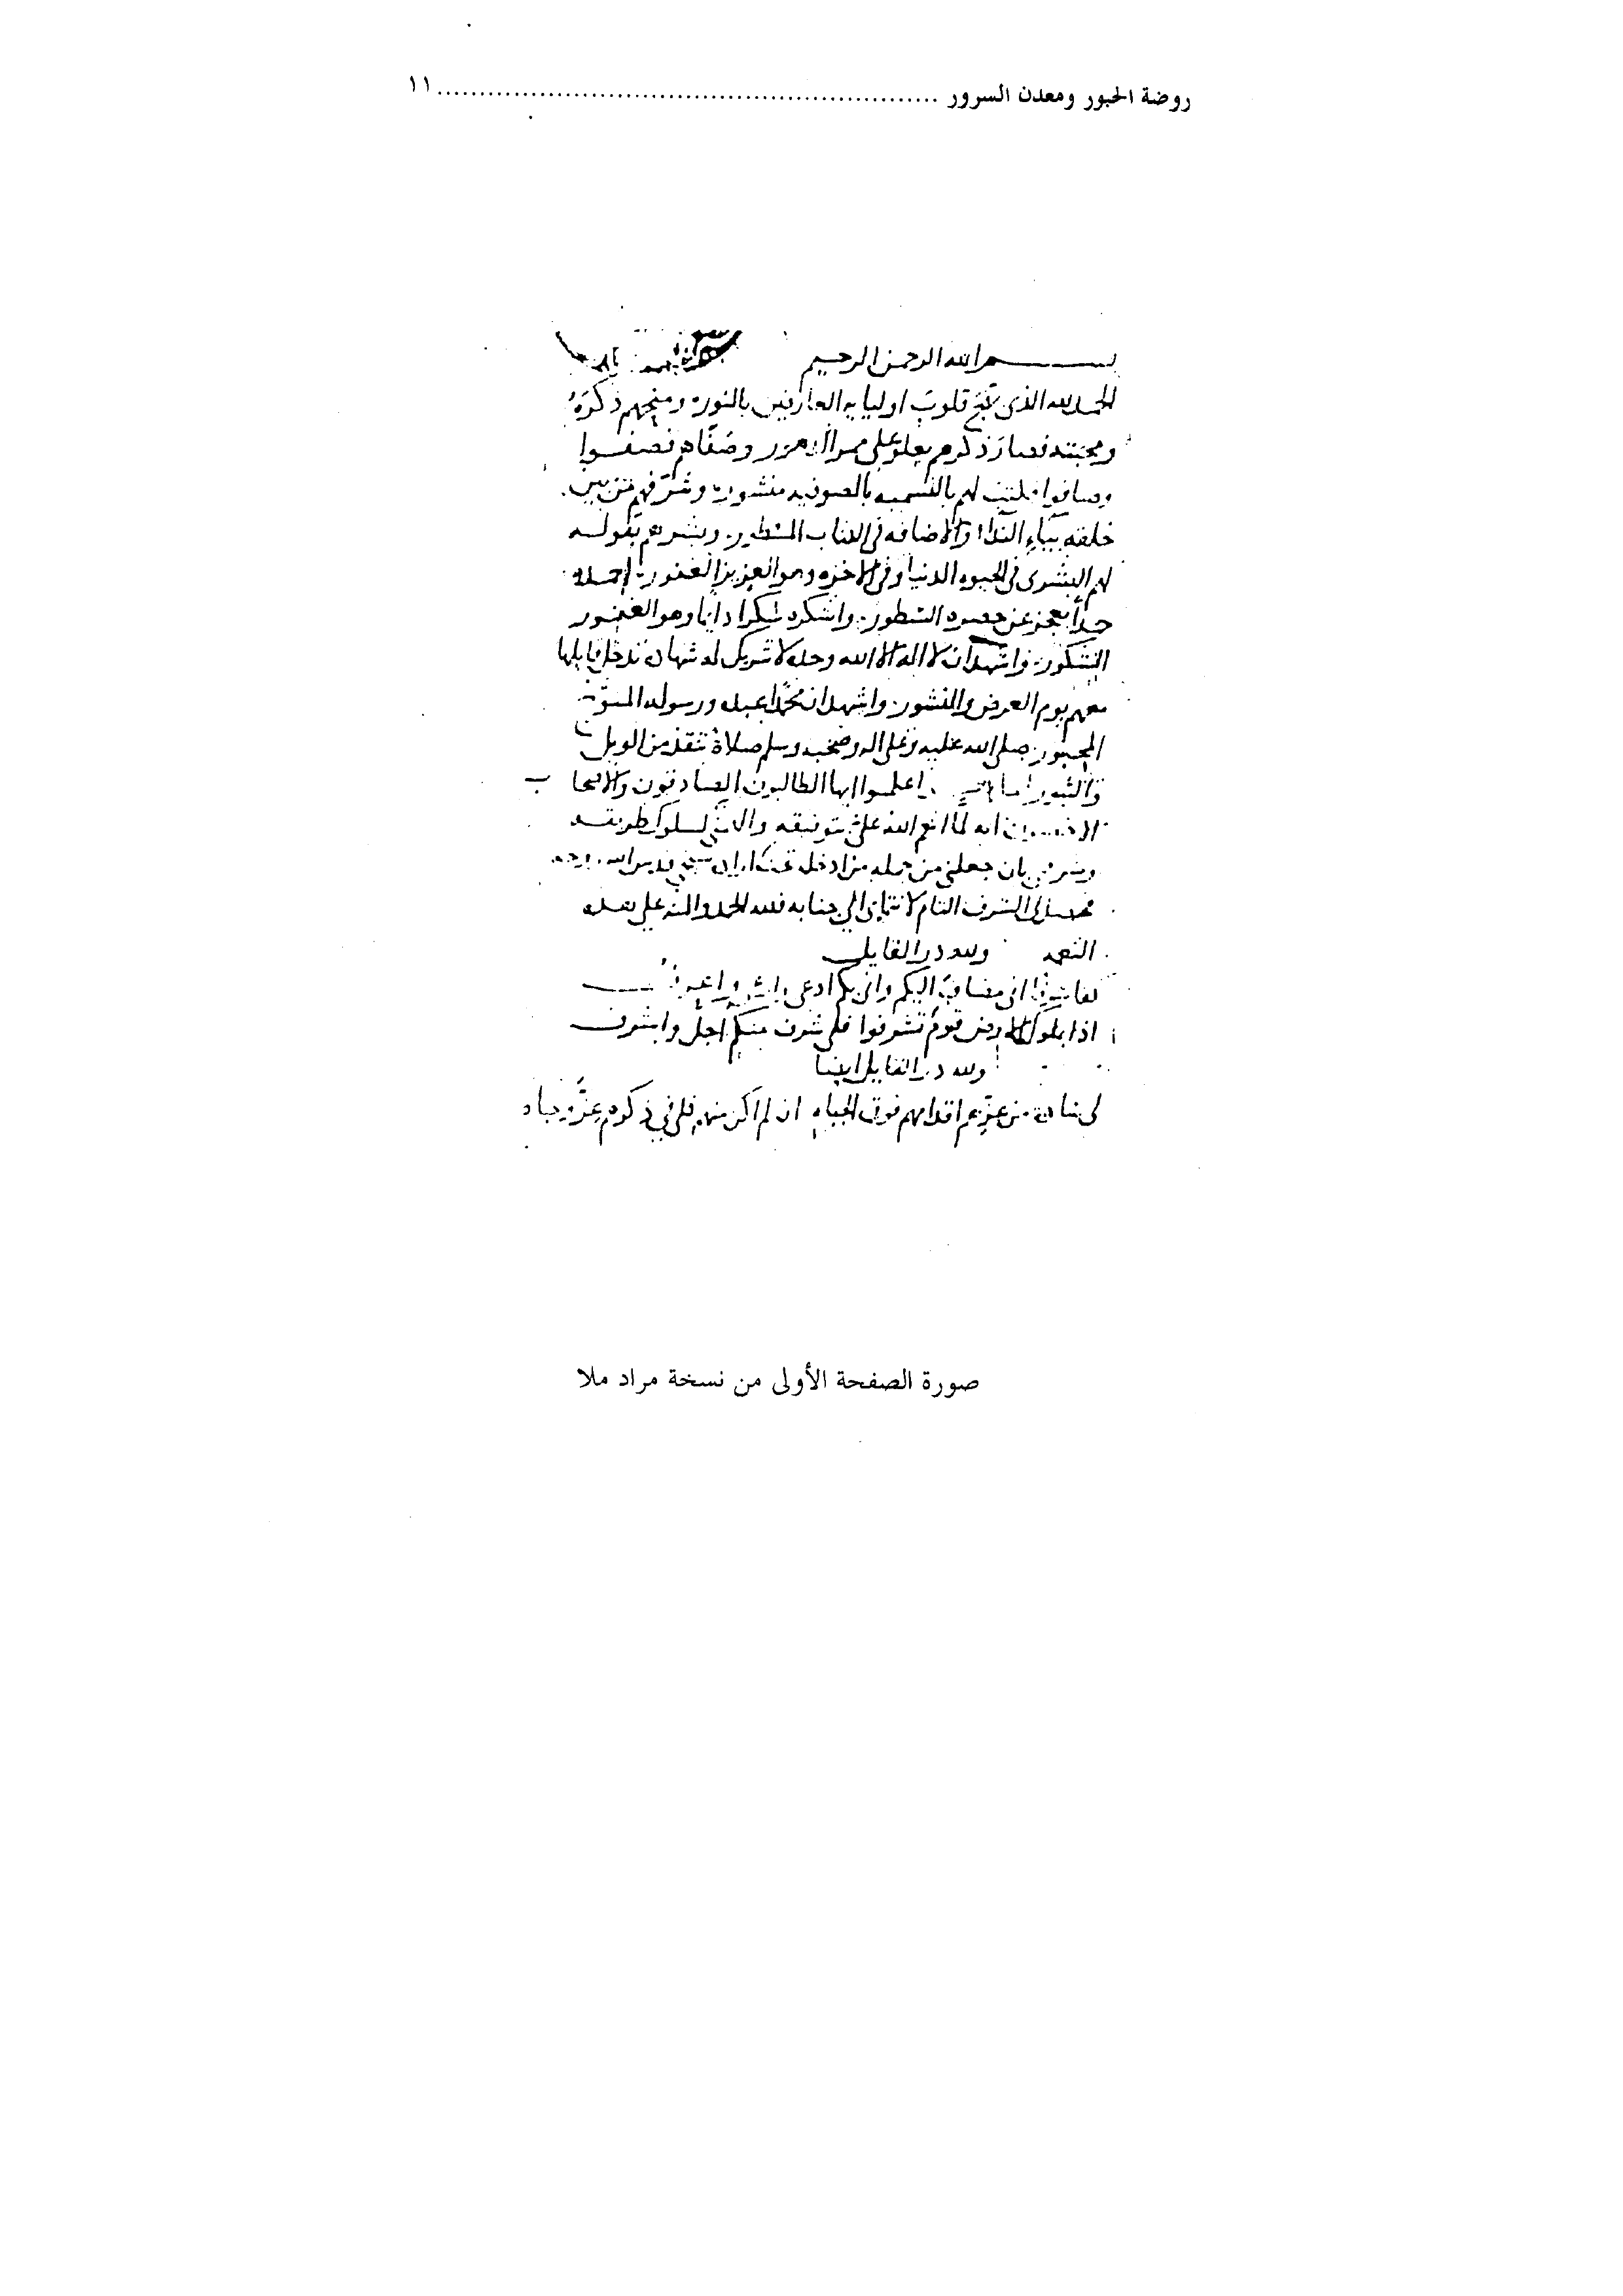 روضة الحبور ومعدن السرور ........................................................... ١١
بسم الله الرحمن الرحيم
الحمد لله الذى قلوب اوليايه العارفين بالنور ومنحهم ذكره
ومحبته فصار ذكرهم يعلو على وصفاهم فصفوا
وصافوا فكتب لهم بالتسميه بالصوفيه منشور وشرفهم من بين
خلقه بياء الندا والاضافه فى الكتاب المسطور وبشرهم بقوله
لهم البشرى فى الحيوه الدنيا وفى الاخره وهو العزيز الغفور احمده
حمدا يعجز عن حصره السطور واشكره شكرا دايما وهو الغفور
الشكور واشهد ان لا اله الا الله وحده لا شريك له شهادة تدخل قايلها
معهم يوم العرض والنشور واشهد ان محمدا عبده ورسوله
صلى الله عليه وعلى اله وصحبه وسلم صلاة تنقذ من الويل
والثبور اما اعلموا ايها الطالبون الصادقون والاصحاب
انه لما انعم الله علي بتوفيقه لسلوك طريقه
بان جعلنى من جمله من ادخله
فحصل لى الشرف التام لانتمائى الى جنابه فلله الحمد والمنه على هذه
النعمه ولله در القايل
انى مضاف اليكم وانى بكم ادعى
اذا بملوك الارض قوم تشرفوا فلى شرف منكم اجل واشرف
ولله در القايل ايضا
لى من عزهم اقدامهم فوق الجباه ان لم اكن منهم فلى فى ذكرهم عز وجاه
صورة الصفحة الأولى من نسخة مراد ملا